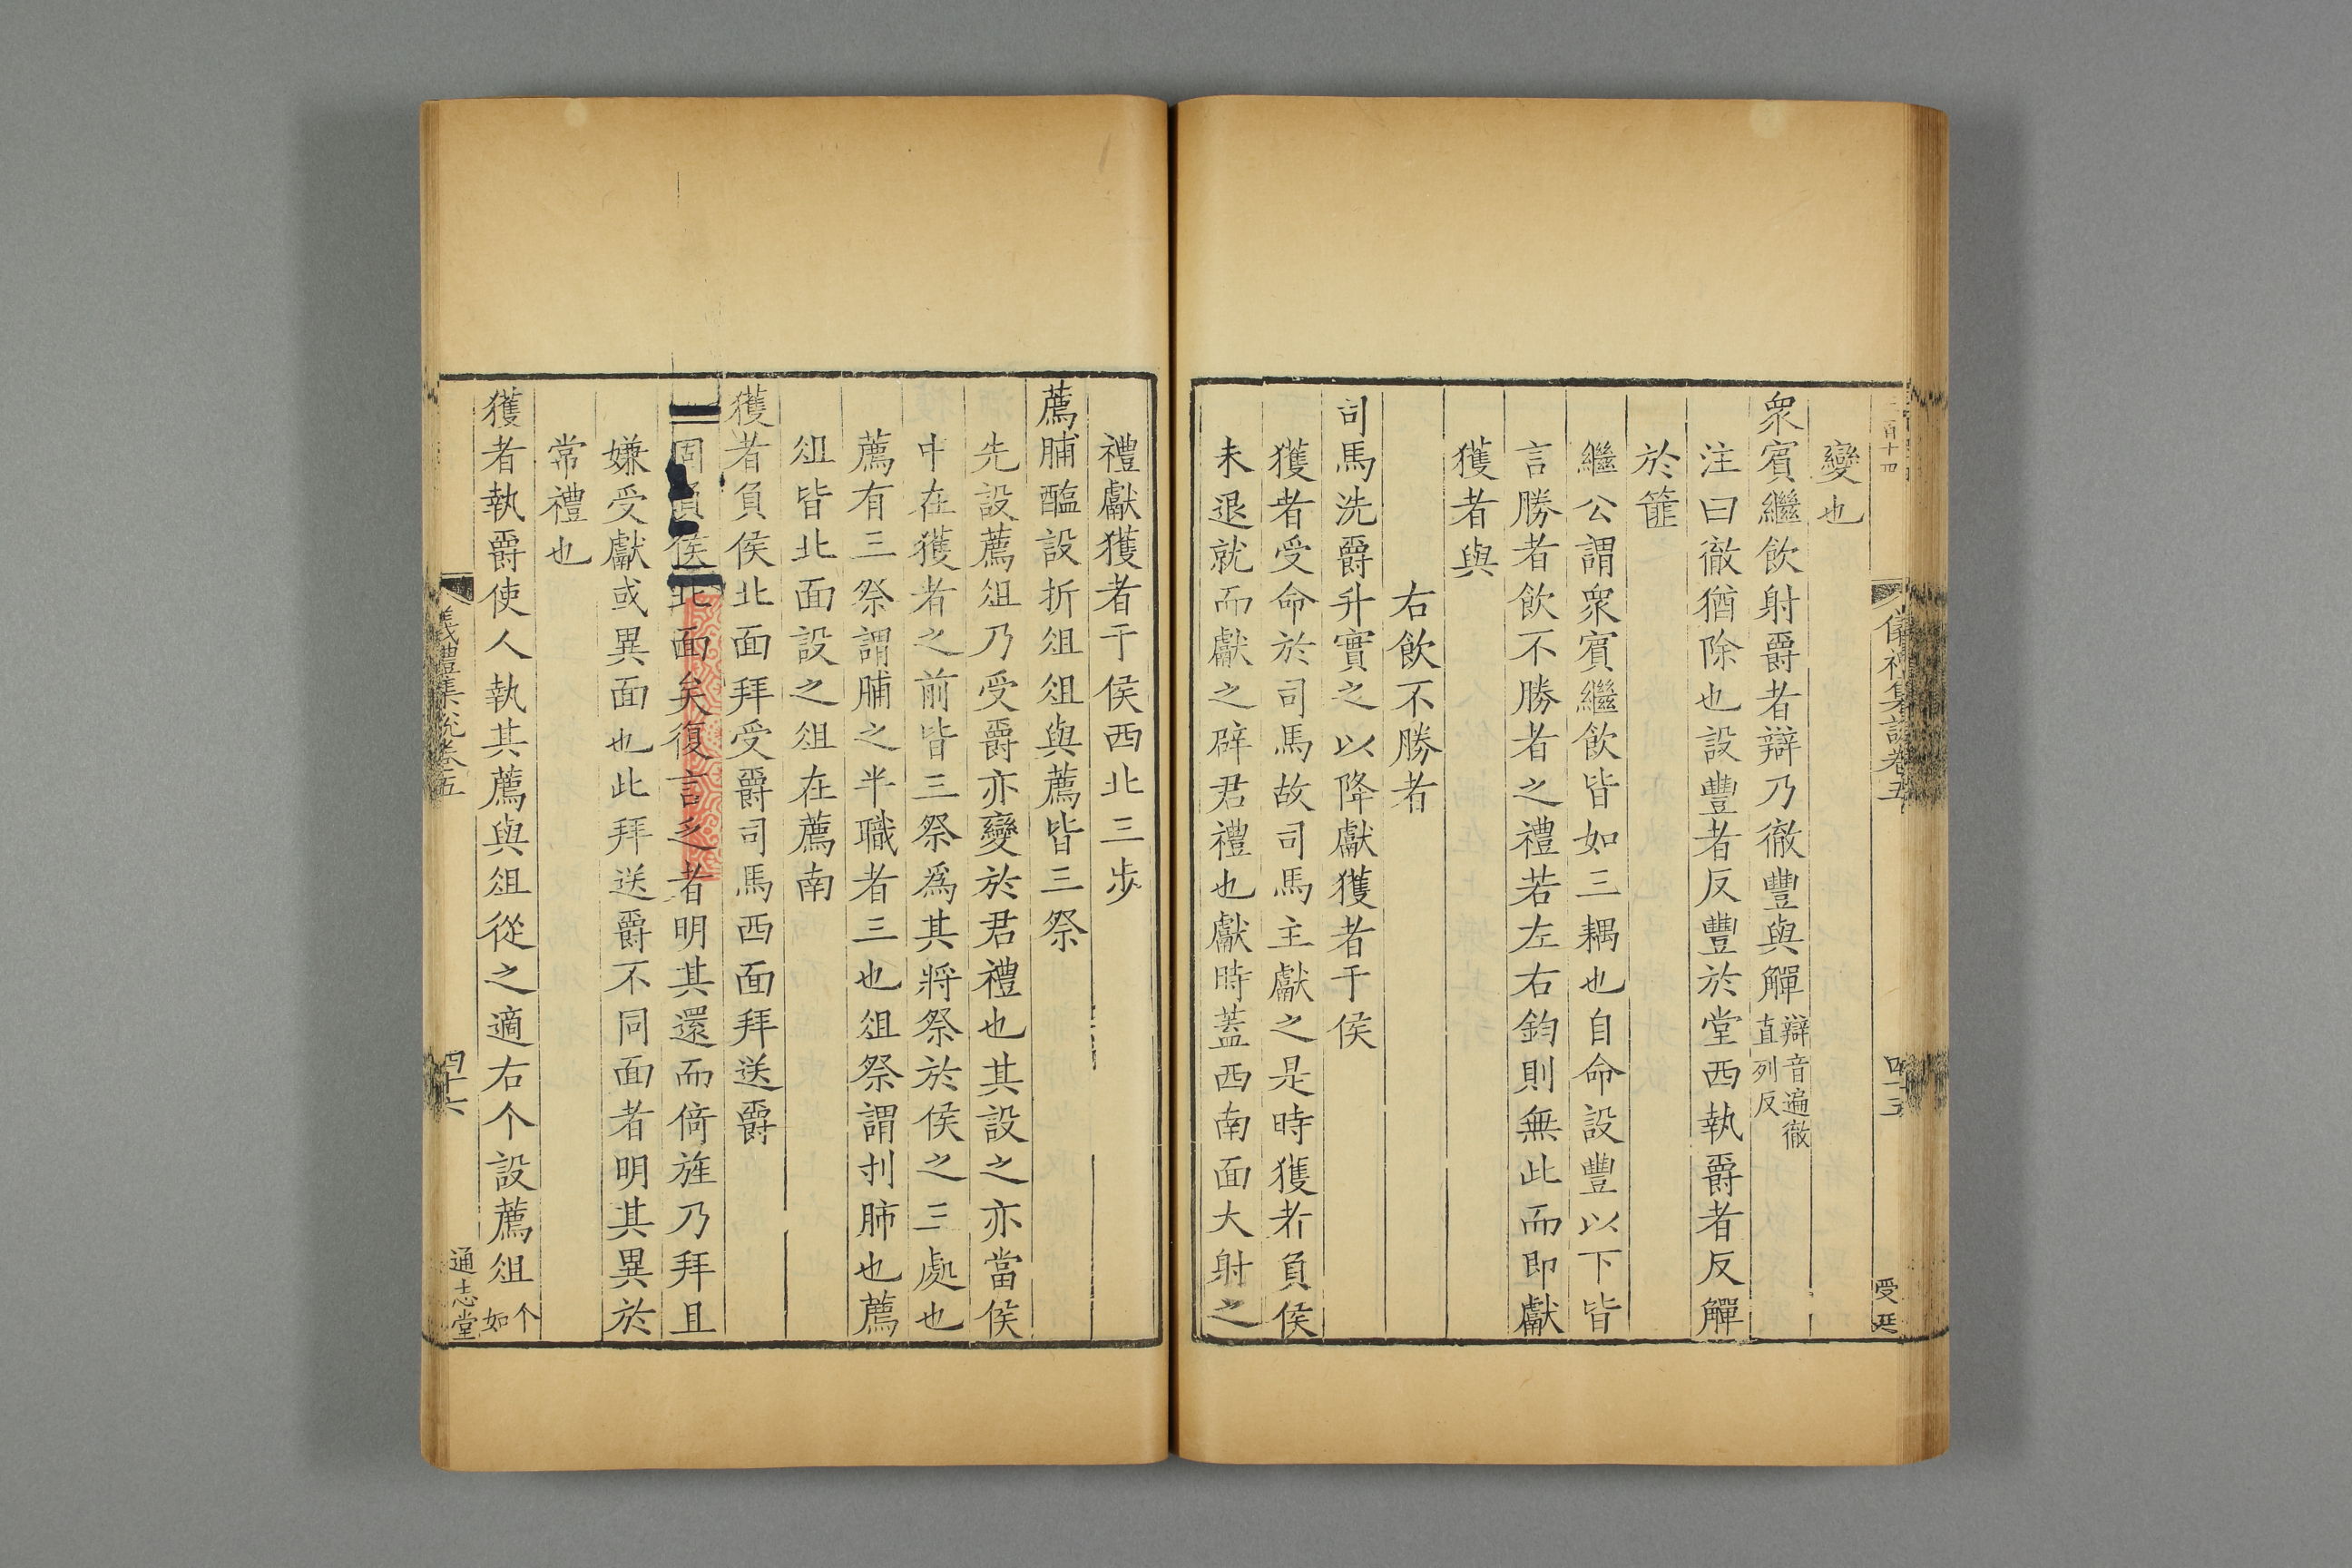 變也
衆賓繼飲射爵者辯乃徹豐與觶辯音遍徹直列反
注曰徹猶除也設豐者反豐於堂西執爵者反觶
於篚
繼公謂衆賓繼飲皆如三耦也自命設豐以下皆
言勝者飲不勝者之禮若左右鈞則無此而即獻
獲者與
右飲不勝者
司馬洗爵升實之以降獻獲者于侯
獲者受命於司馬故司馬主獻之是時獲者負侯
未退就而獻之辟君禮也獻時蓋西南面大射之
禮獻獲者于侯西北三步
薦脯醢設折俎俎與薦皆三祭
先設薦俎乃受爵亦變於君禮也其設之亦當侯
中在獲者之前皆三祭爲其將祭於侯之三處也
薦有三祭謂脯之半職者三也俎祭謂刌肺也薦
俎皆北面設之俎在薦南
獲者負侯北面拜受爵司馬西面拜送爵
固負侯北面矣復言之者明其還而倚旌乃拜且
嫌受獻或異面也此拜送爵不同面者明其異於
常禮也
獲者執爵使人執其薦與俎從之適右个設薦俎个如
儀禮集說卷五
四十六
通志堂